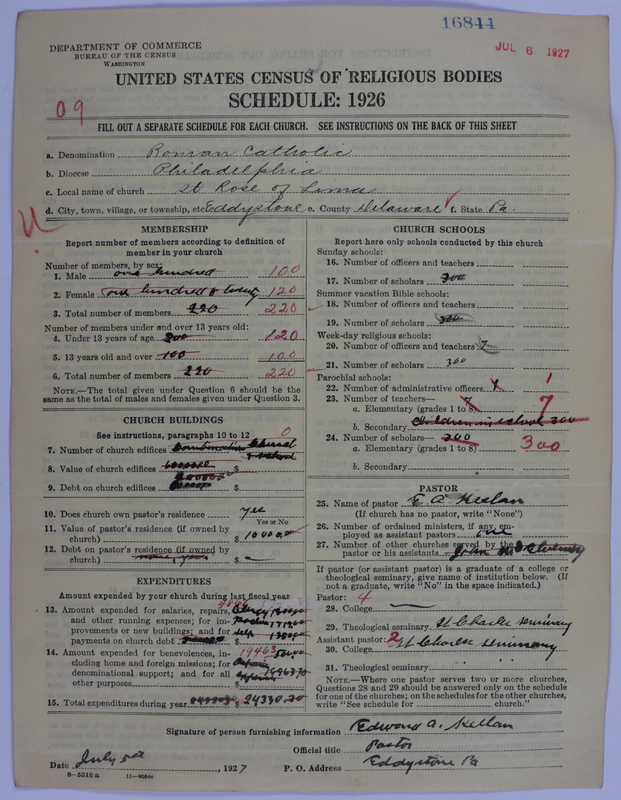 16844
DEPARTMENT OF COMMERCE
BUREAU OF THE CENSUS
WASHINGTON
JUL 6 1927
UNITED STATES CENSUS OF RELIGIOUS BODIES
SCHEDULE: 1926
09
FILL OUT A SEPARATE SCHEDULE FOR EACH CHURCH. SEE INSTRUCTIONS ON THE BACK OF THIS SHEET
a. Denomination Roman Catholic
b. Diocese Philadelphia
c. Local name of church St Rose of Lima
d. City, town, village, or township, etc Eddystone e. County Delaware f. State Pa.
MEMBERSHIP
Report number of members according to definition of member in your church
Number of members, by sex:
1. Male one hundred 100
2. Female one hundred & twenty 120
3. Total number of members 220 220
Number of members under and over 13 years old:
4. Under 13 years of age 200 120
5. 13 years old and over 100 100
6. Total number of members 220 220
NOTE.—The total given under Question 6 should be the
same as the total of males and females given under Question 3.
CHURCH BUILDINGS
See instructions, paragraphs 10 to 12 0
7. Number of church edifices Combination Church & School
8. Value of church edifices $
9. Debt on church edifices $
10. Does church own pastor's residence yes
Yes or No
11. Value of pastor's residence (if owned by
church) $
12. Debt on pastor's residence (if owned by
church) $
EXPENDITURES
Amount expended by your church during last fiscal year
13. Amount expended for salaries, repairs,
and other running expenses; for im-
provements or new buildings; and for
payments on church debt $
14. Amount expended for benevolences, in-
cluding home and foreign missions; for
denominational support; and for all
other purposes $
15. Total expenditures during year $ 24330.70
CHURCH SCHOOLS
Report here only schools conducted by this church
Sunday schools:
16. Number of officers and teachers
17. Number of scholars 300
Summer vacation Bible schools:
18. Number of officers and teachers
19. Number of scholars 300
Week-day religious schools:
20. Number of officers and teachers 7
21. Number of scholars 300
Parochial schools:
22. Number of administrative officers 1 1
23. Number of teachers—
a. Elementary (grades 1 to 8) 7 7
b. Secondary Children in school 300
24. Number of scholars— 300
a. Elementary (grades 1 to 8) 300
b. Secondary
PASTOR
25. Name of pastor E. A.
(If church has no pastor, write "None")
26. Number of ordained ministers, if any, em-
ployed as assistant pastors one
27. Number of other churches served by the
pastor or his assistants John
If pastor (or assistant pastor) is a graduate of a college or
theological seminary, give name of institution below. (If
not a graduate, write "No" in the space indicated.)
Pastor: 4
28. College
29. Theological seminary St Charles Seminary
Assistant pastor: 2
30. College St Charles Seminary
31. Theological seminary
NOTE.—Where one pastor serves two or more churches,
Questions 28 and 29 should be answered only on the schedule
for one of the churches; on the schedules for the other churches,
write "See schedule for church."
Signature of person furnishing information Edward A.
Official title Pastor
Date July 5th, 1927 P. O. Address Eddystone Pa